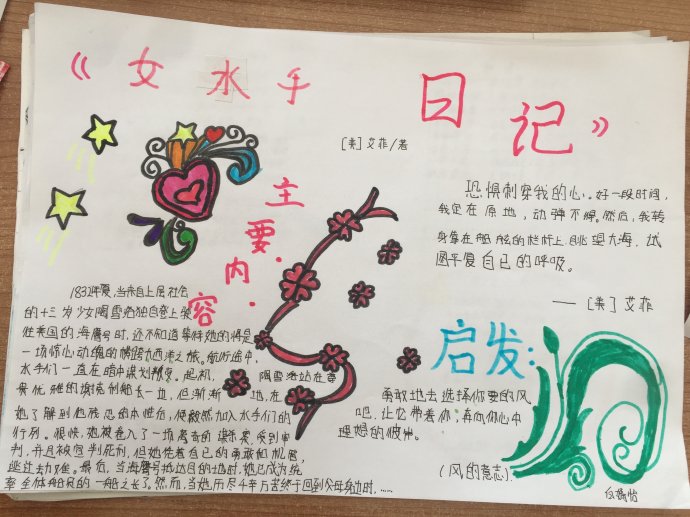 《女水手日记》
[美]艾菲/著
恐惧刺穿我的心。好一段时间,
我定在原地,动弹不得。然后,我转
身靠在船舷的栏杆上,眺望大海,试
图平复自己的呼吸。
——[美]艾菲
主要内容
1832年夏,当来自上层社会
的十三岁少女陶雪洛独自登上驶
往美国的海鹰号时,还不知道等待她的将是
一场惊心动魄的横跨大西洋之旅。航行途中,
水手们一直在暗中谋划叛变。起初,陶雪洛站在尊
贵优雅的谢克利船长一边,但渐渐地,在
她了解到他残忍的本性后,便毅然加入水手们的
行列。很快,她被卷入了一场离奇的谋杀案,受到审
判,并且被宣判死刑,但她凭着自己的勇敢和机智
逃过劫难。最后,当海鹰号抵达目的地时,她已成为统
率全体船员的一船之长了。然而,当她历尽千辛万苦终于回到父母身边时,……
启发:
勇敢地去选择你要的风
吧,让它带着你,奔向你心中
理想的彼岸。
(风的意志)